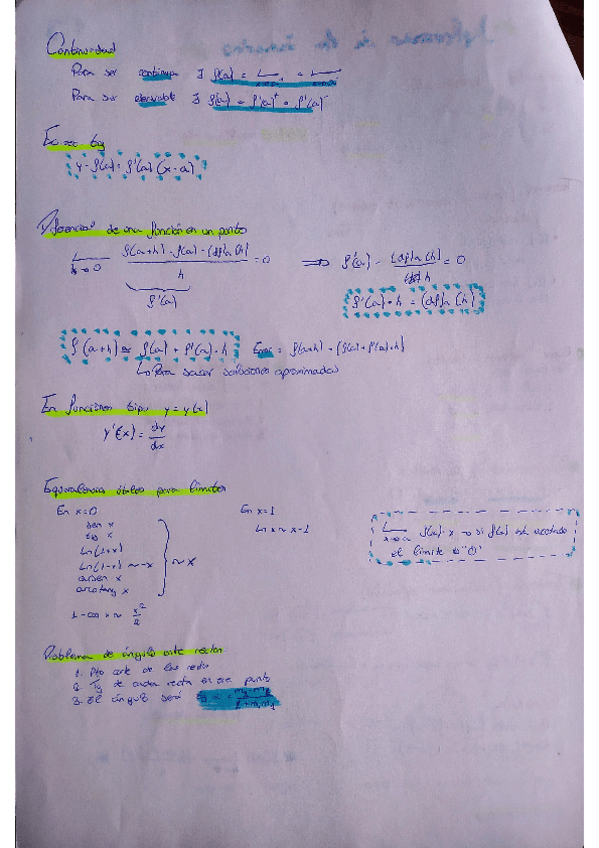 Continuidad
Para ser continua ∃ f(a) = L =
Para ser derivable ∃ f(a) = f'(a)⁺ = f'(a)⁻
Ec rec tg
y - f(a) = f'(a) (x - a)
Diferencial de una función en un punto
L h→0 f(a+h) - f(a) - (df)a (h) / h = 0 ⇒ f'(a) - (df)a (h) / h = 0
f'(a)
f'(a) · h = (df)a (h)
f(a+h) ≈ f(a) + f'(a) · h Error = f(a+h) - (f(a) + f'(a)·h)
↳ Para sacar soluciones aproximadas
En funciones tipo y = y(x)
y'(x) = dy/dx
Equivalencia útiles para límites
En x=0
sen x
tg x
Ln(1+x)
Ln(1-x) ~ -x
arcsen x
arcotang x
~ x
1 - cos x ~ x²/2
En x=1
Ln x ~ x-1
L f(x) · x → si f(x) está acotado
el límite es "0"
Problema de ángulo entre rectas
1. Pto corte de las rectas
2. Tg de cada recta en ese punto
3. El ángulo será